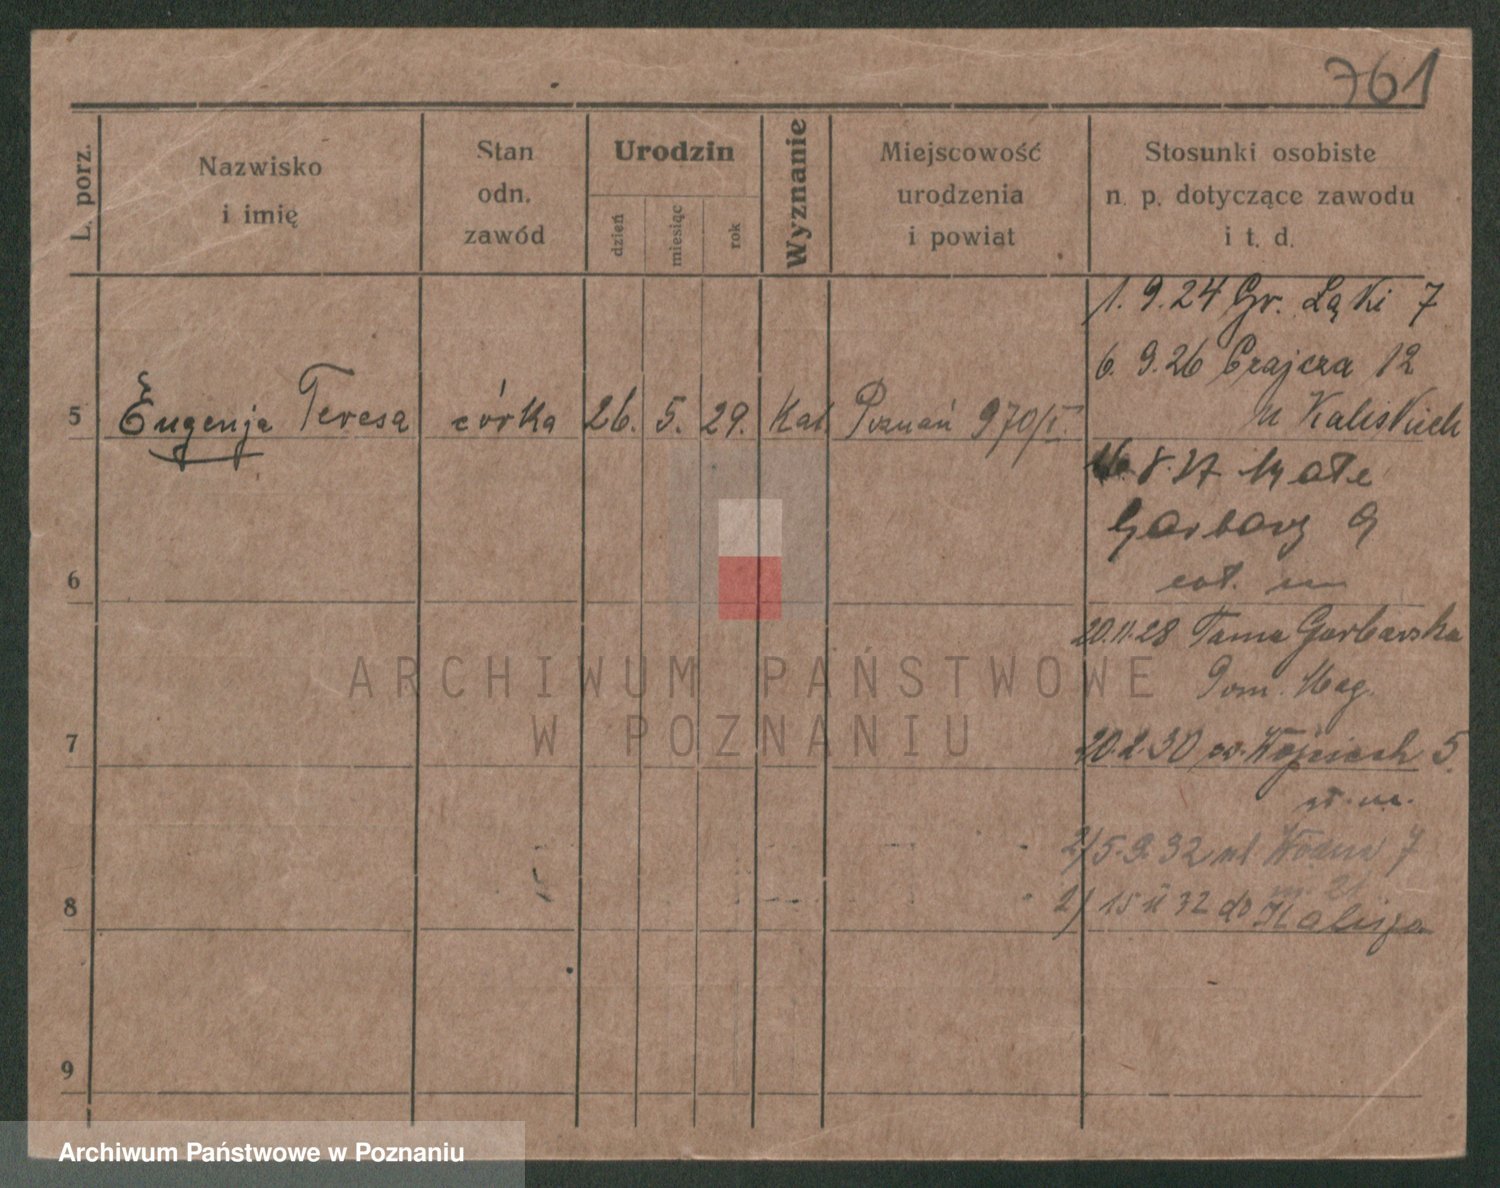 761
L. porz.
Nazwisko
i imię
Stan
odn.
zawód
Urodzin
dzień
miesiąc
rok
Wyznanie
Miejscowość
urodzenia
i powiat
Stosunki osobiste
n. p. dotyczące zawodu
i t. d.
1. 9. 24 Gr. Łąki 7
6. 9. 26 Czajcza 12
u Kaliskich
5 Eugenja Teresa córka 26. 5. 29. Kat. Poznań 970/I.
8. 27 Małe
Garbary 9
6
20.11.28 Tama Garbarska
Pom. Mag.
7
20.2.30 św. Wojciech 5.
gł. m.
2/ 5. 9. 32 ul Wodna 7
m. 21
2/ 15 II 32 do Kalisza
8
9
ARCHIWUM PAŃSTWOWE
W POZNANIU
Archiwum Państwowe w Poznaniu